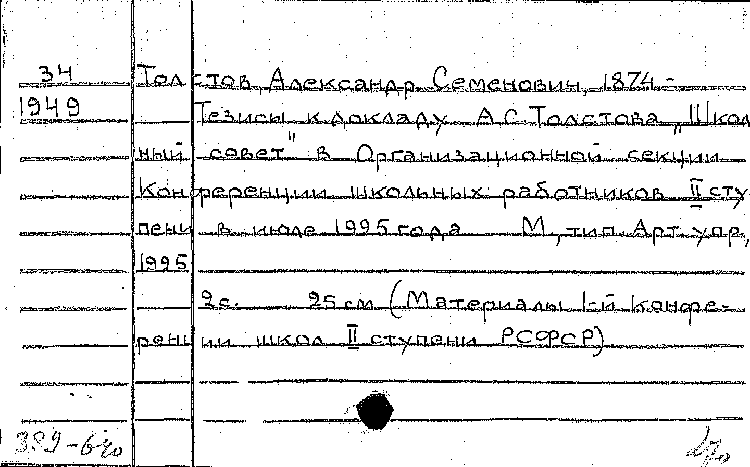 34 Толстов, Александр Семенович, 1874-
1949 Тезисы к докладу А.С. Толстова „Школ
ный совет" в Организационной секции
Конференции школьных работников II сту
пени в июле 1995 года М, тип. Арт. упр,
1995
2с. 25 см (Материалы I-й Конфе-
ренции школ II ступени РСФСР)
389-640